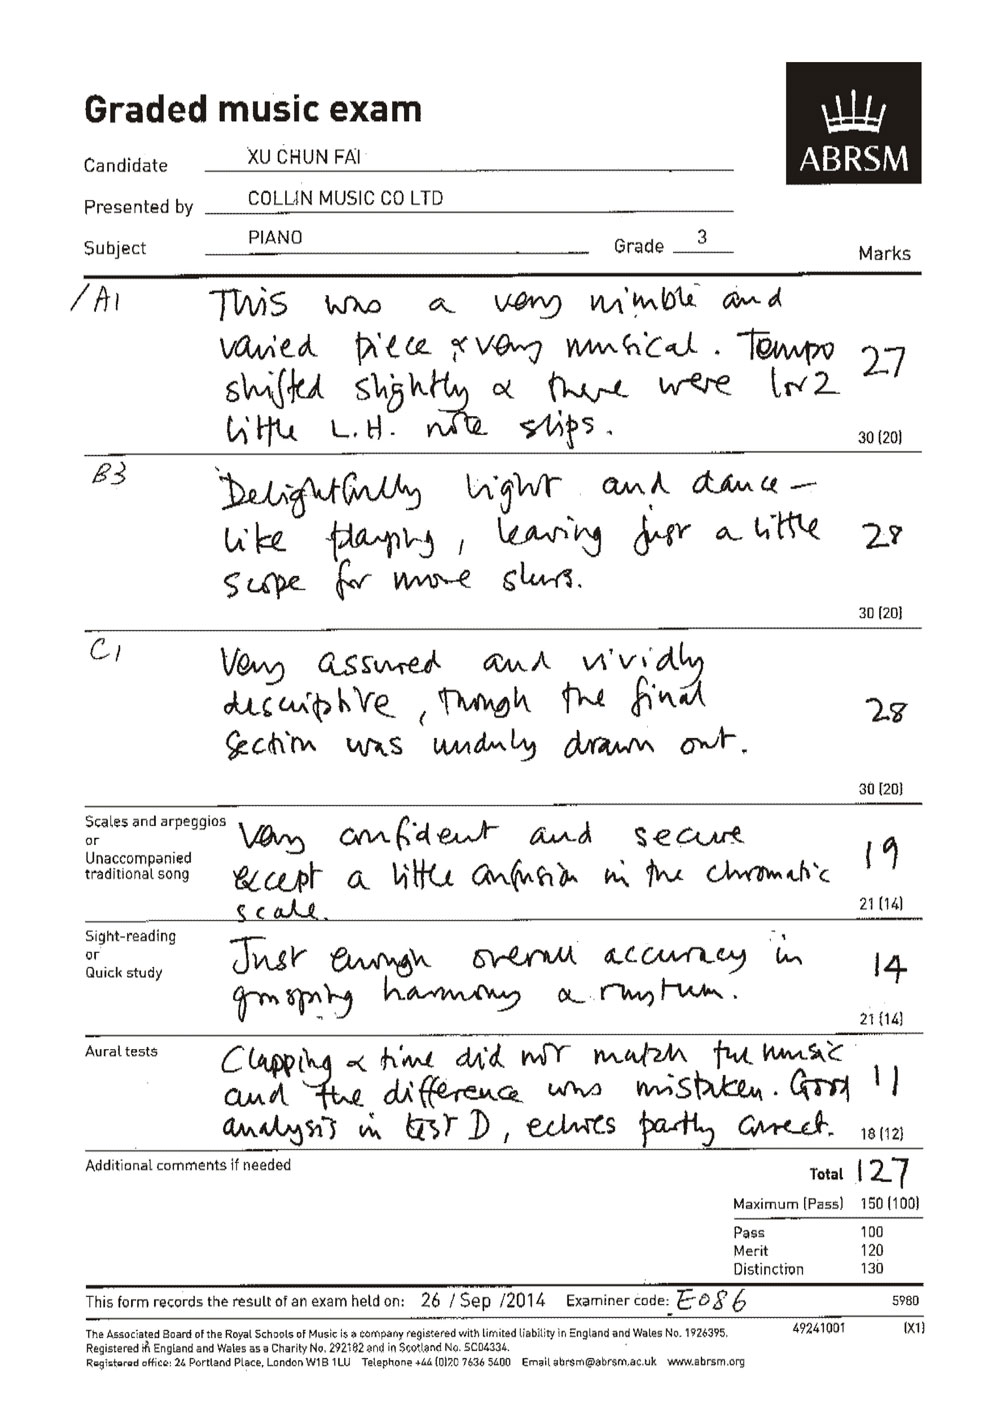 Graded music exam
ABRSM
Candidate XU CHUN FAI
Presented by COLLIN MUSIC CO LTD
Subject PIANO Grade 3 Marks
/A1 This was a very nimble and
varied piece & very musical. Tempo 27
shifted slightly & there were 1 or 2
little L.H. note slips. 30 (20)
B3 Delightfully light and dance –
like playing, leaving just a little 28
scope for more slurs.
30 (20)
C1 Very assured and vividly
descriptive, though the final 28
section was unduly drawn out.
30 (20)
Scales and arpeggios
or
Unaccompanied
traditional song
Very confident and secure 19
except a little confusion in the chromatic
scale. 21 (14)
Sight-reading
or
Quick study
Just enough overall accuracy in 14
grasping harmony & rhythm.
21 (14)
Aural tests Clapping & time did not match the music 11
and the difference was mistaken. Good
analysis in test D, echoes partly correct. 18 (12)
Additional comments if needed
Total 127
Maximum (Pass) 150 (100)
Pass 100
Merit 120
Distinction 130
This form records the result of an exam held on: 26 / Sep / 2014 Examiner code: E086 5980
The Associated Board of the Royal Schools of Music is a company registered with limited liability in England and Wales No. 1926395. 49241001 (X1)
Registered in England and Wales as a Charity No. 292182 and in Scotland No. SC04334.
Registered office: 24 Portland Place, London W1B 1LU Telephone +44 (0)20 7636 5400 Email abrsm@abrsm.ac.uk www.abrsm.org